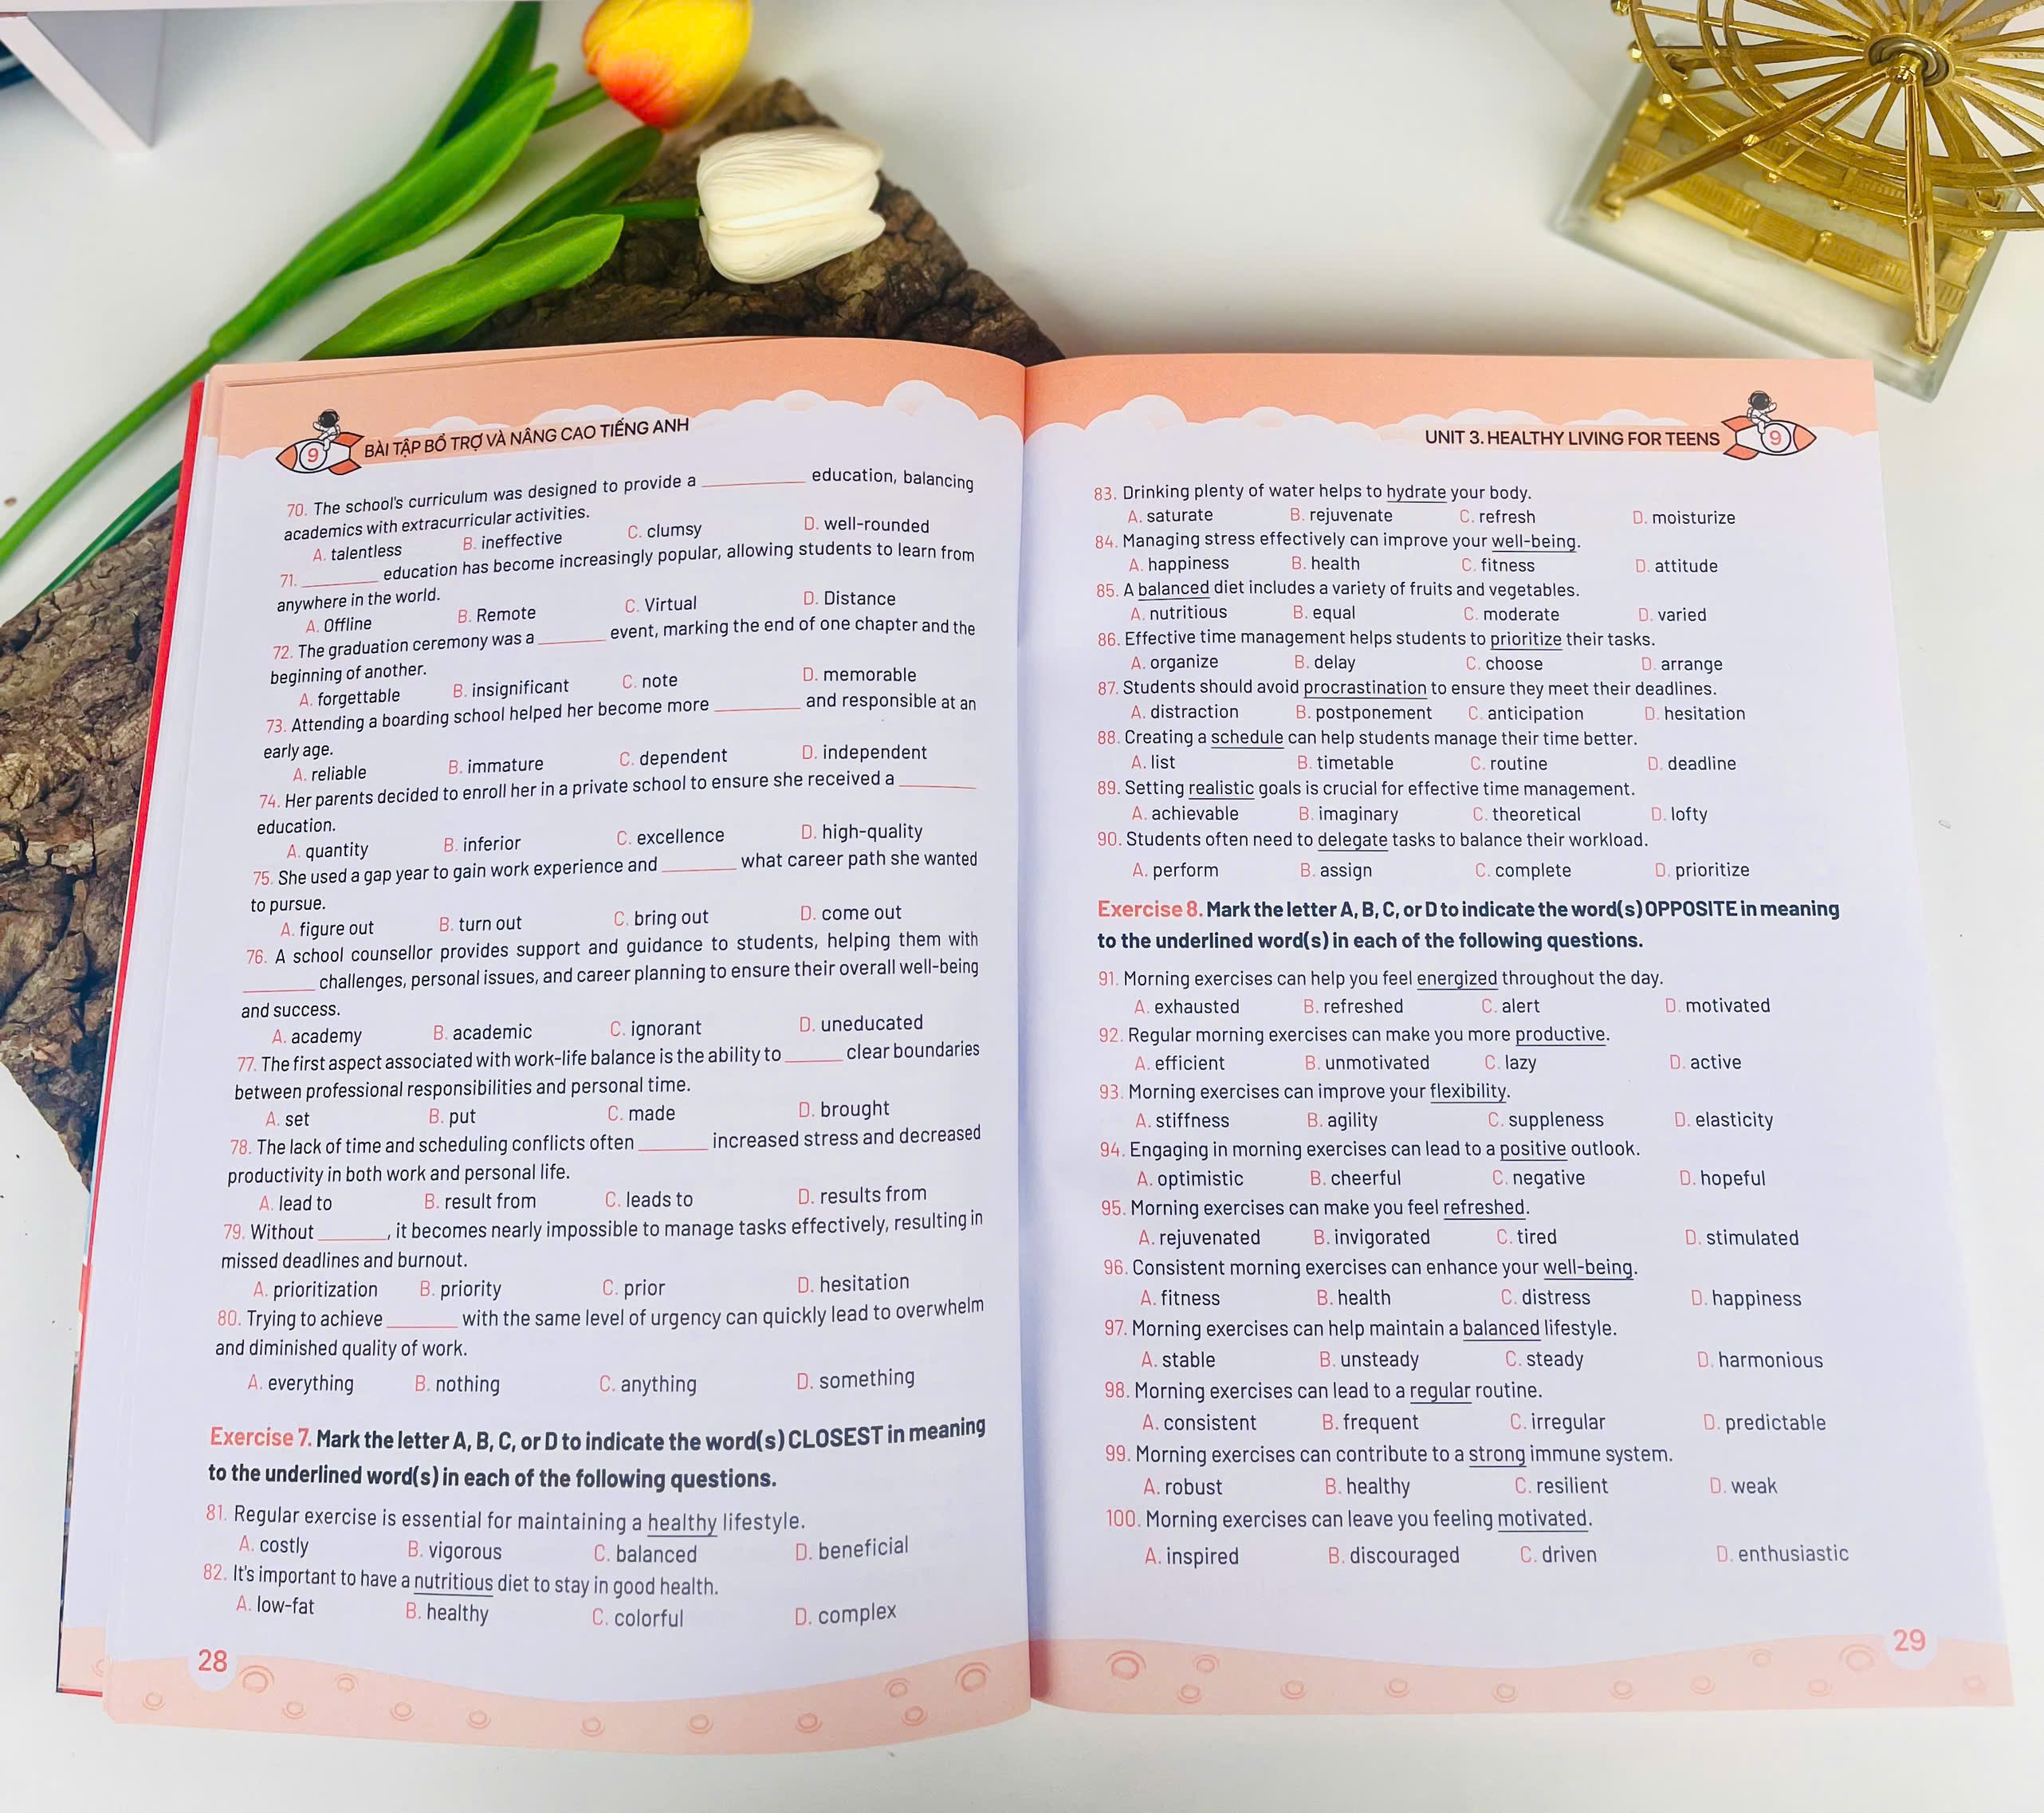 9 BÀI TẬP BỔ TRỢ VÀ NÂNG CAO TIẾNG ANH
70. The school's curriculum was designed to provide a __________ education, balancing
academics with extracurricular activities.
A. talentless B. ineffective C. clumsy D. well-rounded
71. ________ education has become increasingly popular, allowing students to learn from
anywhere in the world.
A. Offline B. Remote C. Virtual D. Distance
72. The graduation ceremony was a _______ event, marking the end of one chapter and the
beginning of another.
A. forgettable B. insignificant C. note D. memorable
73. Attending a boarding school helped her become more _________ and responsible at an
early age.
A. reliable B. immature C. dependent D. independent
74. Her parents decided to enroll her in a private school to ensure she received a ________
education.
A. quantity B. inferior C. excellence D. high-quality
75. She used a gap year to gain work experience and ________ what career path she wanted
to pursue.
A. figure out B. turn out C. bring out D. come out
76. A school counsellor provides support and guidance to students, helping them with
________ challenges, personal issues, and career planning to ensure their overall well-being
and success.
A. academy B. academic C. ignorant D. uneducated
77. The first aspect associated with work-life balance is the ability to ______ clear boundaries
between professional responsibilities and personal time.
A. set B. put C. made D. brought
78. The lack of time and scheduling conflicts often _______ increased stress and decreased
productivity in both work and personal life.
A. lead to B. result from C. leads to D. results from
79. Without _______, it becomes nearly impossible to manage tasks effectively, resulting in
missed deadlines and burnout.
A. prioritization B. priority C. prior D. hesitation
80. Trying to achieve _______ with the same level of urgency can quickly lead to overwhelm
and diminished quality of work.
A. everything B. nothing C. anything D. something
Exercise 7. Mark the letter A, B, C, or D to indicate the word(s) CLOSEST in meaning
to the underlined word(s) in each of the following questions.
81. Regular exercise is essential for maintaining a healthy lifestyle.
A. costly B. vigorous C. balanced D. beneficial
82. It's important to have a nutritious diet to stay in good health.
A. low-fat B. healthy C. colorful D. complex
28
UNIT 3. HEALTHY LIVING FOR TEENS 9
83. Drinking plenty of water helps to hydrate your body.
A. saturate B. rejuvenate C. refresh D. moisturize
84. Managing stress effectively can improve your well-being.
A. happiness B. health C. fitness D. attitude
85. A balanced diet includes a variety of fruits and vegetables.
A. nutritious B. equal C. moderate D. varied
86. Effective time management helps students to prioritize their tasks.
A. organize B. delay C. choose D. arrange
87. Students should avoid procrastination to ensure they meet their deadlines.
A. distraction B. postponement C. anticipation D. hesitation
88. Creating a schedule can help students manage their time better.
A. list B. timetable C. routine D. deadline
89. Setting realistic goals is crucial for effective time management.
A. achievable B. imaginary C. theoretical D. lofty
90. Students often need to delegate tasks to balance their workload.
A. perform B. assign C. complete D. prioritize
Exercise 8. Mark the letter A, B, C, or D to indicate the word(s) OPPOSITE in meaning
to the underlined word(s) in each of the following questions.
91. Morning exercises can help you feel energized throughout the day.
A. exhausted B. refreshed C. alert D. motivated
92. Regular morning exercises can make you more productive.
A. efficient B. unmotivated C. lazy D. active
93. Morning exercises can improve your flexibility.
A. stiffness B. agility C. suppleness D. elasticity
94. Engaging in morning exercises can lead to a positive outlook.
A. optimistic B. cheerful C. negative D. hopeful
95. Morning exercises can make you feel refreshed.
A. rejuvenated B. invigorated C. tired D. stimulated
96. Consistent morning exercises can enhance your well-being.
A. fitness B. health C. distress D. happiness
97. Morning exercises can help maintain a balanced lifestyle.
A. stable B. unsteady C. steady D. harmonious
98. Morning exercises can lead to a regular routine.
A. consistent B. frequent C. irregular D. predictable
99. Morning exercises can contribute to a strong immune system.
A. robust B. healthy C. resilient D. weak
100. Morning exercises can leave you feeling motivated.
A. inspired B. discouraged C. driven D. enthusiastic
29